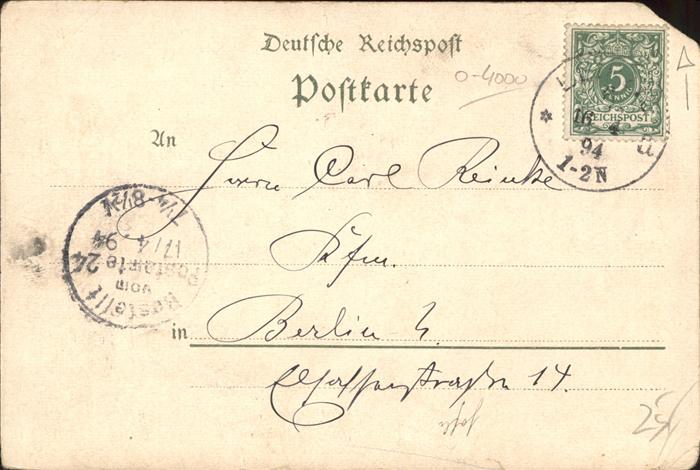 Deutsche Reichspost
Postkarte
0-4000
5
PFENNIG
REICHSPOST
16 4
94
1-2N
a
An
Herrn Carl Reinke
Kfm.
in Berlin N.
Elsasserstrasse 14.
Bestellt
vom
Postamte 24
17/4 94
7¼-8½V
25